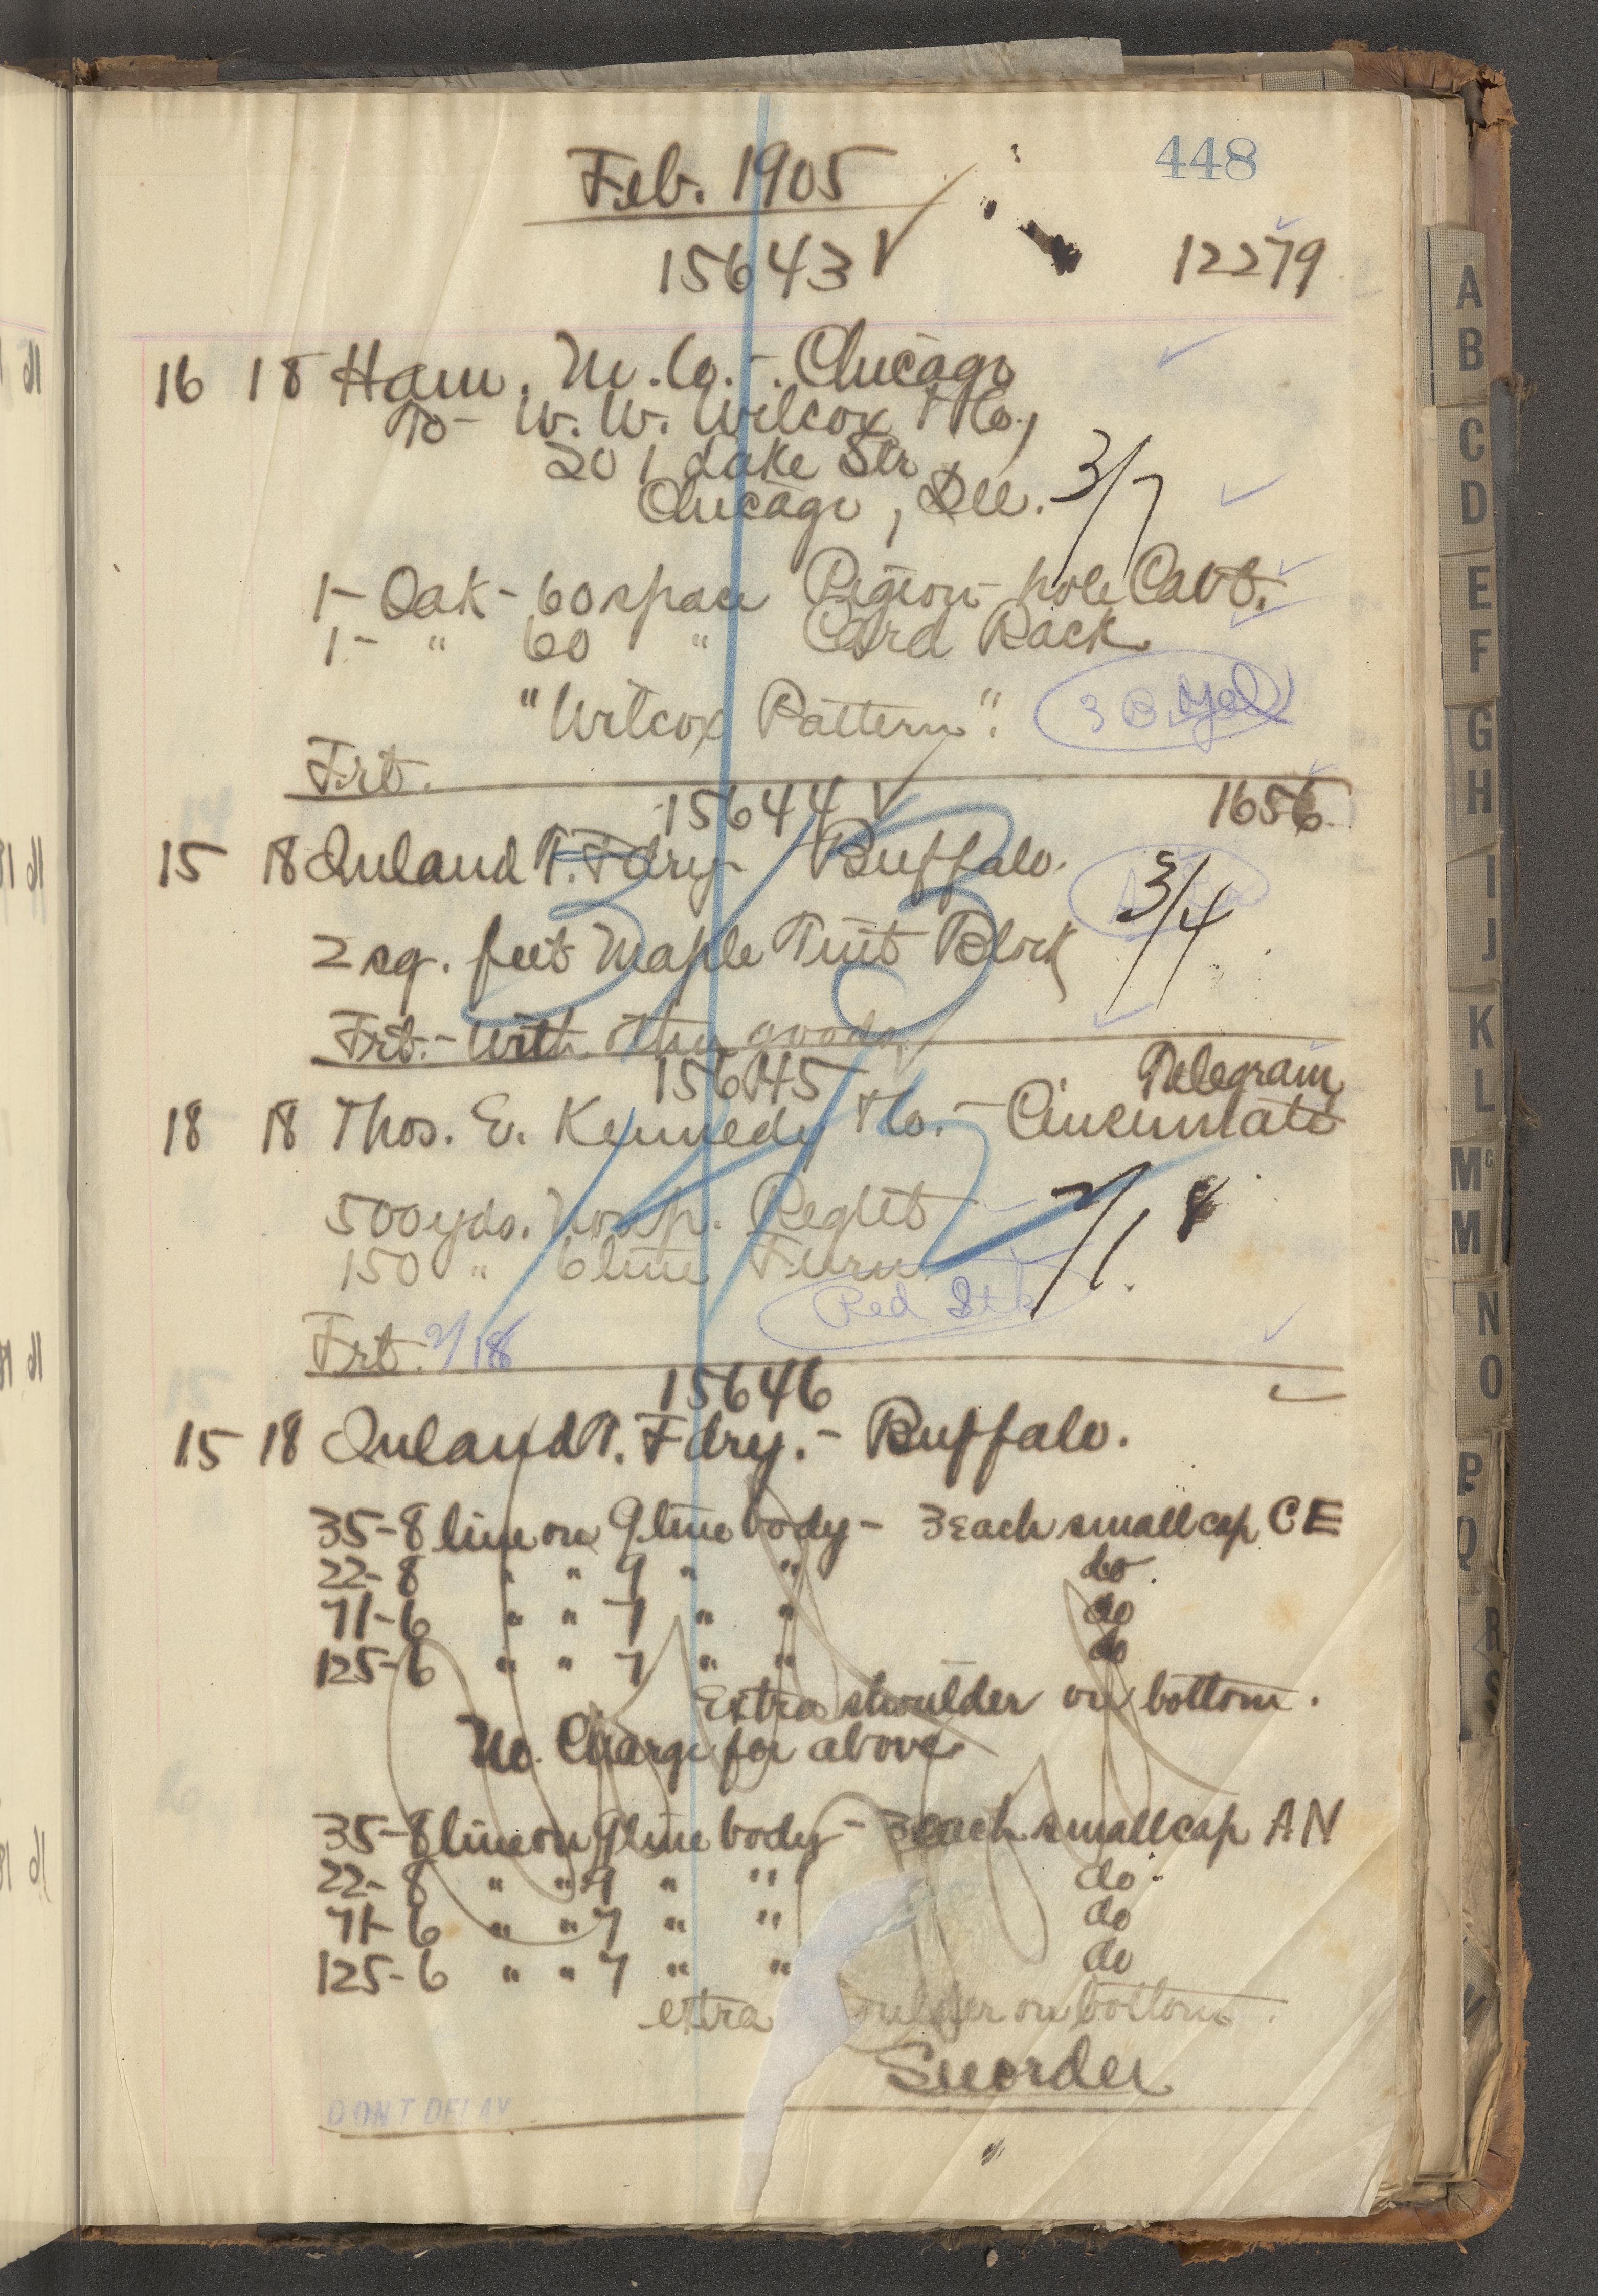 448
Feb. 1905
15643 ✓ 12279
16 18 Ham. M. Co. - Chicago
To - W. W. Wilcox & Co.,
201 Lake Str
Chicago, Ill. 3/7
1 - Oak - 60 space Pigeon-hole Cabt.
1 - " 60 " Card Rack
"Wilcox Pattern".
Frt.
15644 ✓ 1656
15 18 Inland T. Fdry - Buffalo.
3/4
2 sq. feet Maple Tint Block
Frt. - With other goods
15645 Telegram
18 18 Thos. E. Kennedy & Co. - Cincinnati
500 yds. Nonp. Reglet 2/18
150 " 6 line Furn.
Red Stk
Frt. 2/18
15646
15 18 Inland T. Fdry. - Buffalo.
35-8 line on 9 line body - 3 each small cap C E
22-8 " " 9 " " do.
71-6 " " 7 " " do
125-6 " " 7 " " do
Extra shoulder on bottom.
No. Charge for above
35-8 line on 9 line body - 3 each small cap A N
22-8 " " 9 " " do.
71-6 " " 7 " " do
125-6 " " 7 " " do
extra oulder on bottom.
DON'T DELAY
A
B
C
D
E
F
G
H
I
J
K
L
Mc
M
N
O
P
Q
R
S